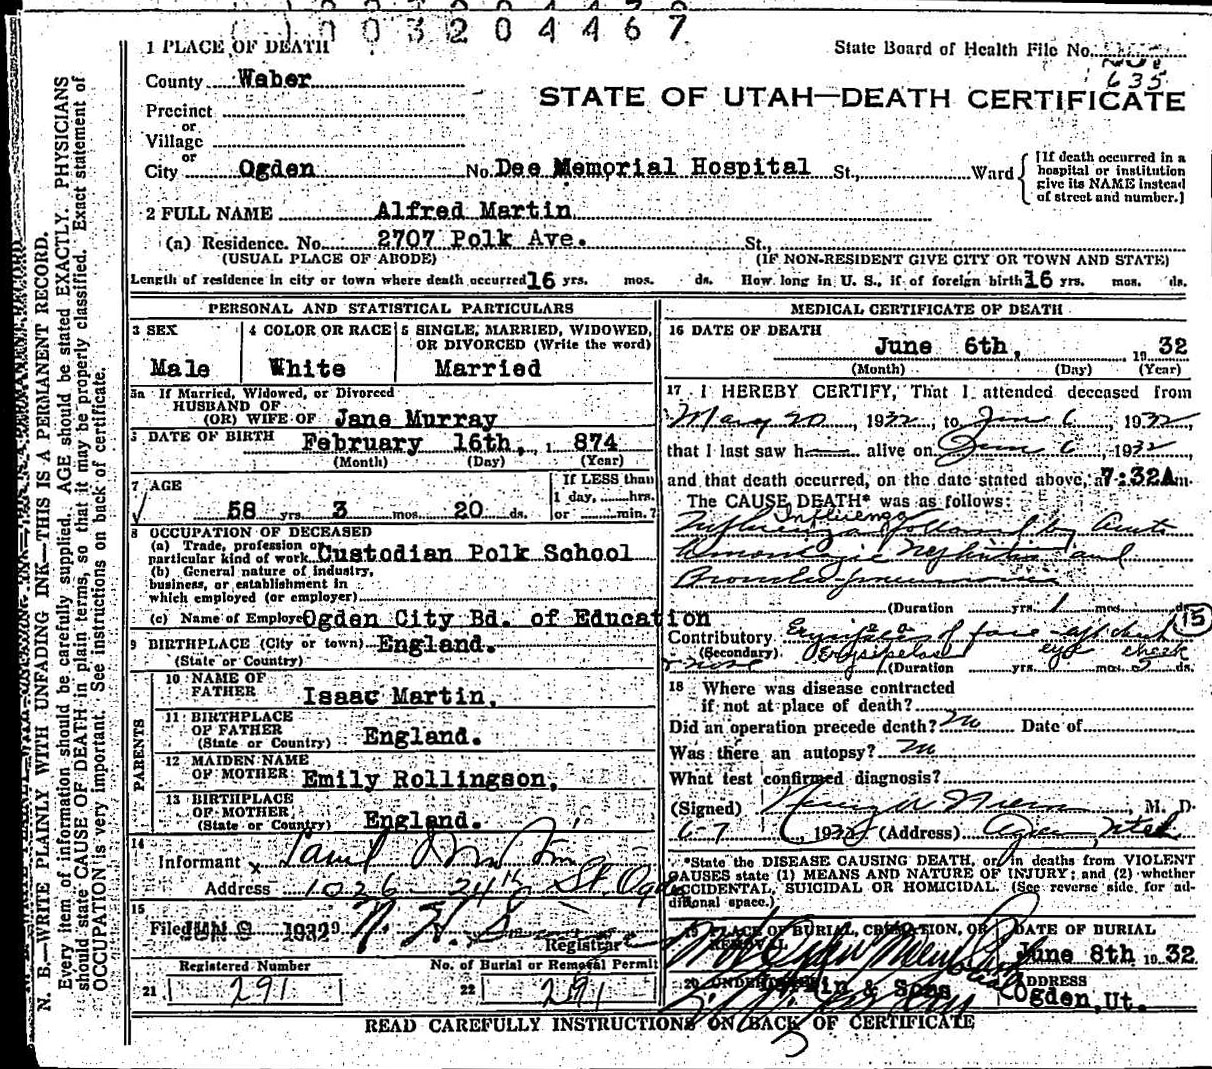 003204467
1 PLACE OF DEATH
State Board of Health File No.
635
County Weber
STATE OF UTAH—DEATH CERTIFICATE
Precinct
or
Village
or
City Ogden No. Dee Memorial Hospital St., Ward
[If death occurred in a
hospital or institution
give its NAME instead
of street and number.]
2 FULL NAME Alfred Martin
(a) Residence. No. 2707 Polk Ave. St.,
(USUAL PLACE OF ABODE) (IF NON-RESIDENT GIVE CITY OR TOWN AND STATE)
Length of residence in city or town where death occurred 16 yrs. mos. ds. How long in U. S., if of foreign birth 16 yrs. mos. ds.
PERSONAL AND STATISTICAL PARTICULARS
3 SEX
Male
4 COLOR OR RACE
White
5 SINGLE, MARRIED, WIDOWED,
OR DIVORCED (Write the word)
Married
5a If Married, Widowed, or Divorced
HUSBAND OF
(OR) WIFE OF Jane Murray
6 DATE OF BIRTH February 16th, 1 874
(Month) (Day) (Year)
7 AGE
58 yrs. 3 mos. 20 ds.
If LESS than
1 day, hrs.
or min.?
8 OCCUPATION OF DECEASED
(a) Trade, profession or
particular kind of work Custodian Polk School
(b) General nature of industry,
business, or establishment in
which employed (or employer)
(c) Name of Employer Ogden City Bd. of Education
9 BIRTHPLACE (City or town) England.
(State or Country)
PARENTS
10 NAME OF
FATHER Isaac Martin.
11 BIRTHPLACE
OF FATHER
(State or Country) England.
12 MAIDEN NAME
OF MOTHER Emily Rollingson.
13 BIRTHPLACE
OF MOTHER
(State or Country) England.
14
Informant
Address 1026 - 24th St. Ogden
15
Filed JUN 1932
Registrar
Registered Number
21 291
No. of Burial or Removal Permit
22 291
MEDICAL CERTIFICATE OF DEATH
16 DATE OF DEATH
June 6th, 19 32
(Month) (Day) (Year)
17 I HEREBY CERTIFY, That I attended deceased from
May 20, 1932, to June 6, 1932,
that I last saw h alive on June 6, 1932,
and that death occurred, on the date stated above, at 7:32A m.
The CAUSE DEATH* was as follows:
Influenza
Influenza followed by Acute
hemorrhagic Nephritis and
Broncho-pneumonia
(Duration yrs. 1 mos. ds.
15
Contributory Erysipelas of face
(Secondary) Erysipelas eye cheek
nose (Duration yrs. mos. 5 ds.
18 Where was disease contracted
if not at place of death?
Did an operation precede death? No Date of
Was there an autopsy? No
What test confirmed diagnosis?
(Signed) M. D.
6-7, 1932 (Address) Ogden, Utah
*State the DISEASE CAUSING DEATH, or, in deaths from VIOLENT
CAUSES state (1) MEANS AND NATURE OF INJURY; and (2) whether
ACCIDENTAL, SUICIDAL OR HOMICIDAL. (See reverse side for ad-
ditional space.)
19 PLACE OF BURIAL, CREMATION, OR
REMOVAL
DATE OF BURIAL
June 8th, 19 32
20 UNDERTAKER
& Sons
ADDRESS
Ogden, Ut.
READ CAREFULLY INSTRUCTIONS ON BACK OF CERTIFICATE
N. B.—WRITE PLAINLY WITH UNFADING INK—THIS IS A PERMANENT RECORD.
Every item of information should be carefully supplied. AGE should be stated EXACTLY. PHYSICIANS
should state CAUSE OF DEATH in plain terms, so that it may be properly classified. Exact statement of
OCCUPATION is very important. See instructions on back of certificate.